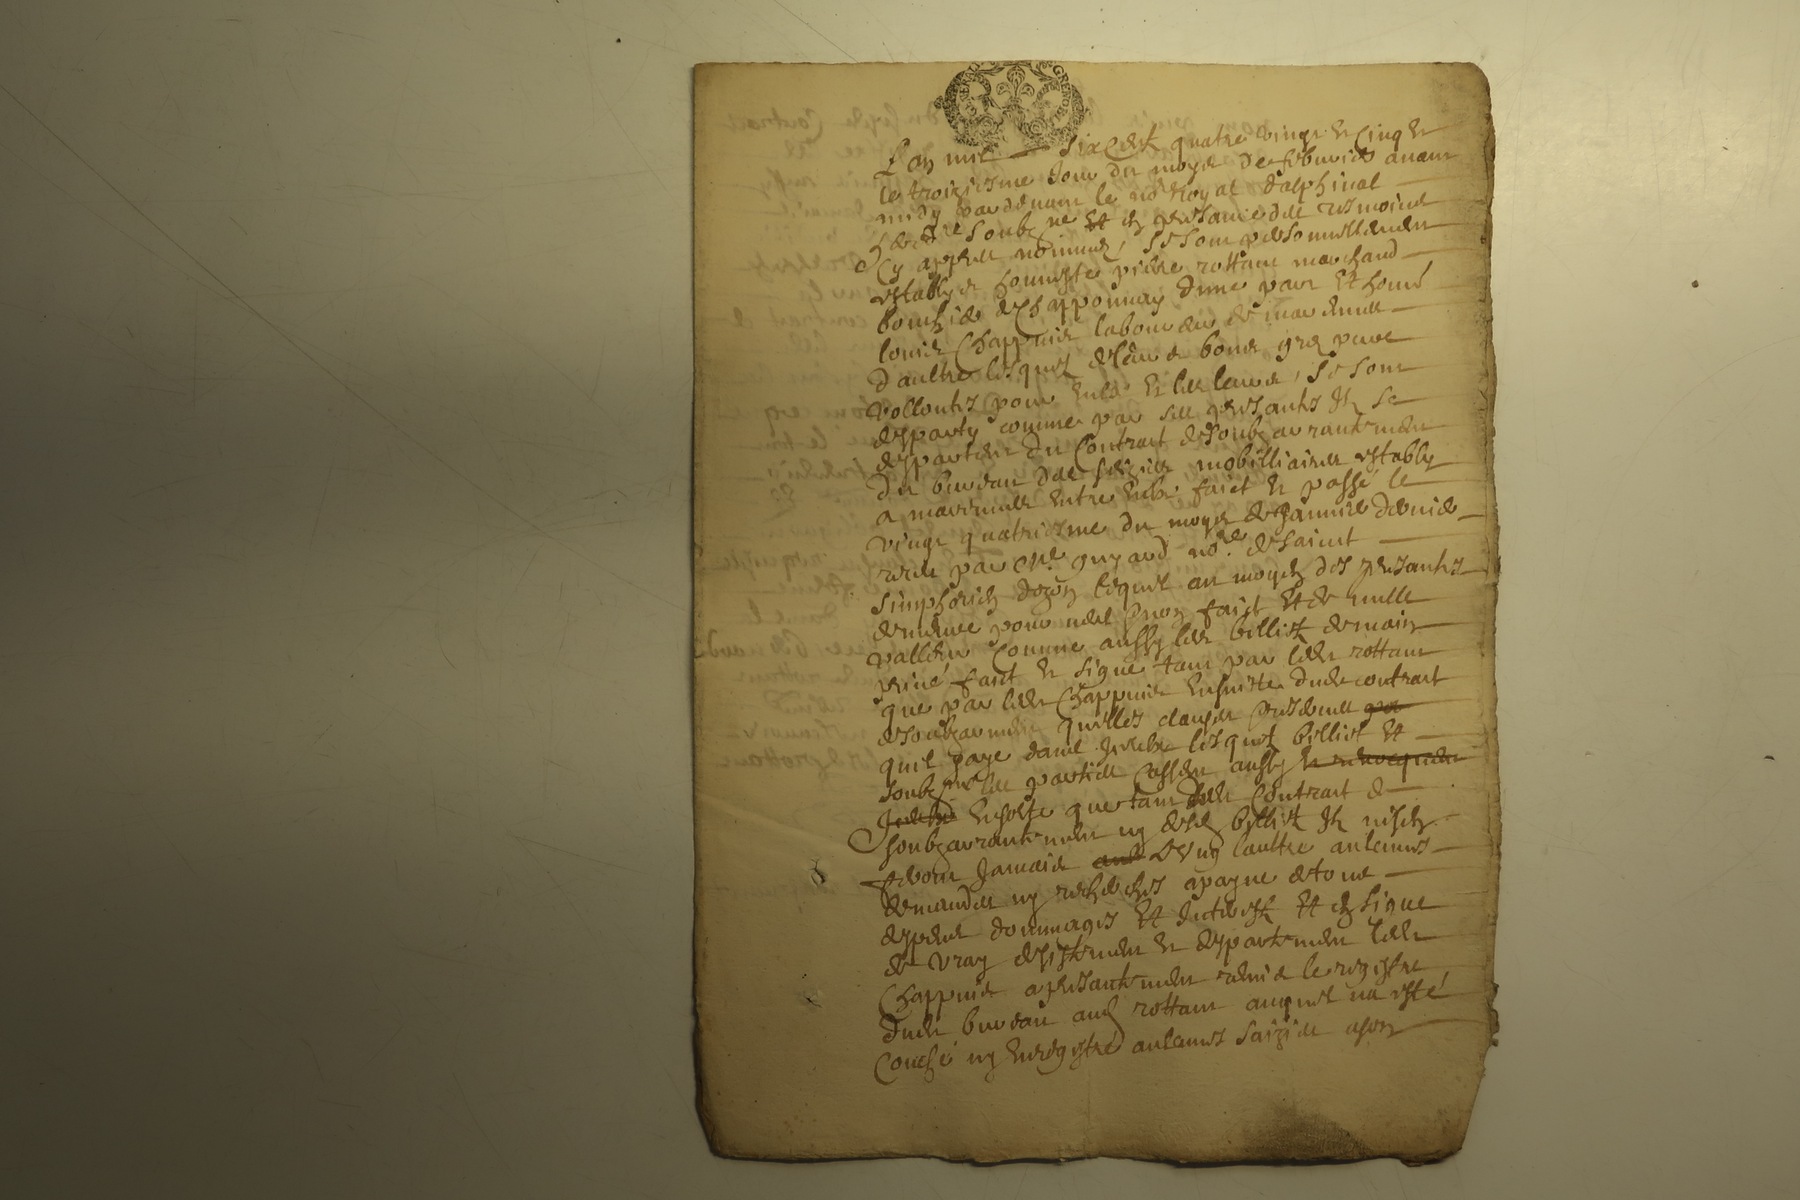 L'an mil six cent quatre vingt et cinq et
le troiziesme jour du moys de febvrier avant
midy pardevant le no.re Royal dalphinal
soubz.ne et en presance des tesmoins
cy appres nommes, se sont personnellement
establys honneste pierre rottant marchand
bouchier de Chapponnay d'une part et honné
louis Chappuis laboureur de marennes
d'aultre lesquels de leurs bons gres pures
vollontes pour eulx et les leurs, se sont
desparty comme par ses presantes ilz se
despartent du Contract de soubzarrantement
du bureau des saizies mobilliaires estably
a marennes entre eulx faict et passé le
vingt quatriesme du moys de Janvier dernier
receu par M.e guyard no.re de saint
simphorien dozon lequel au moyen des presantes
demeure pour nul non faict et de nulle
valleur comme aussy les billiets de main
privé faict et signé tant par ledit rottant
que par ledit Chappuis ensuitte dudit contract
quil soye dans iceulx lesquels billiets et
les parties cassent aussy
ensorte que tant ledit Contract de
soubzarrantement ny desd billiets ilz nisen
feront Jamais l'ung laultre aulcunes
demandes ny recherches a payne de tous
despens dommages et interests et en signe
de vray desistement et despartement ledit
Chappuis a presantement remis le registre
dudit bureau aud rottant auquel na esté
Couché ny enregistré aulcunes saizies